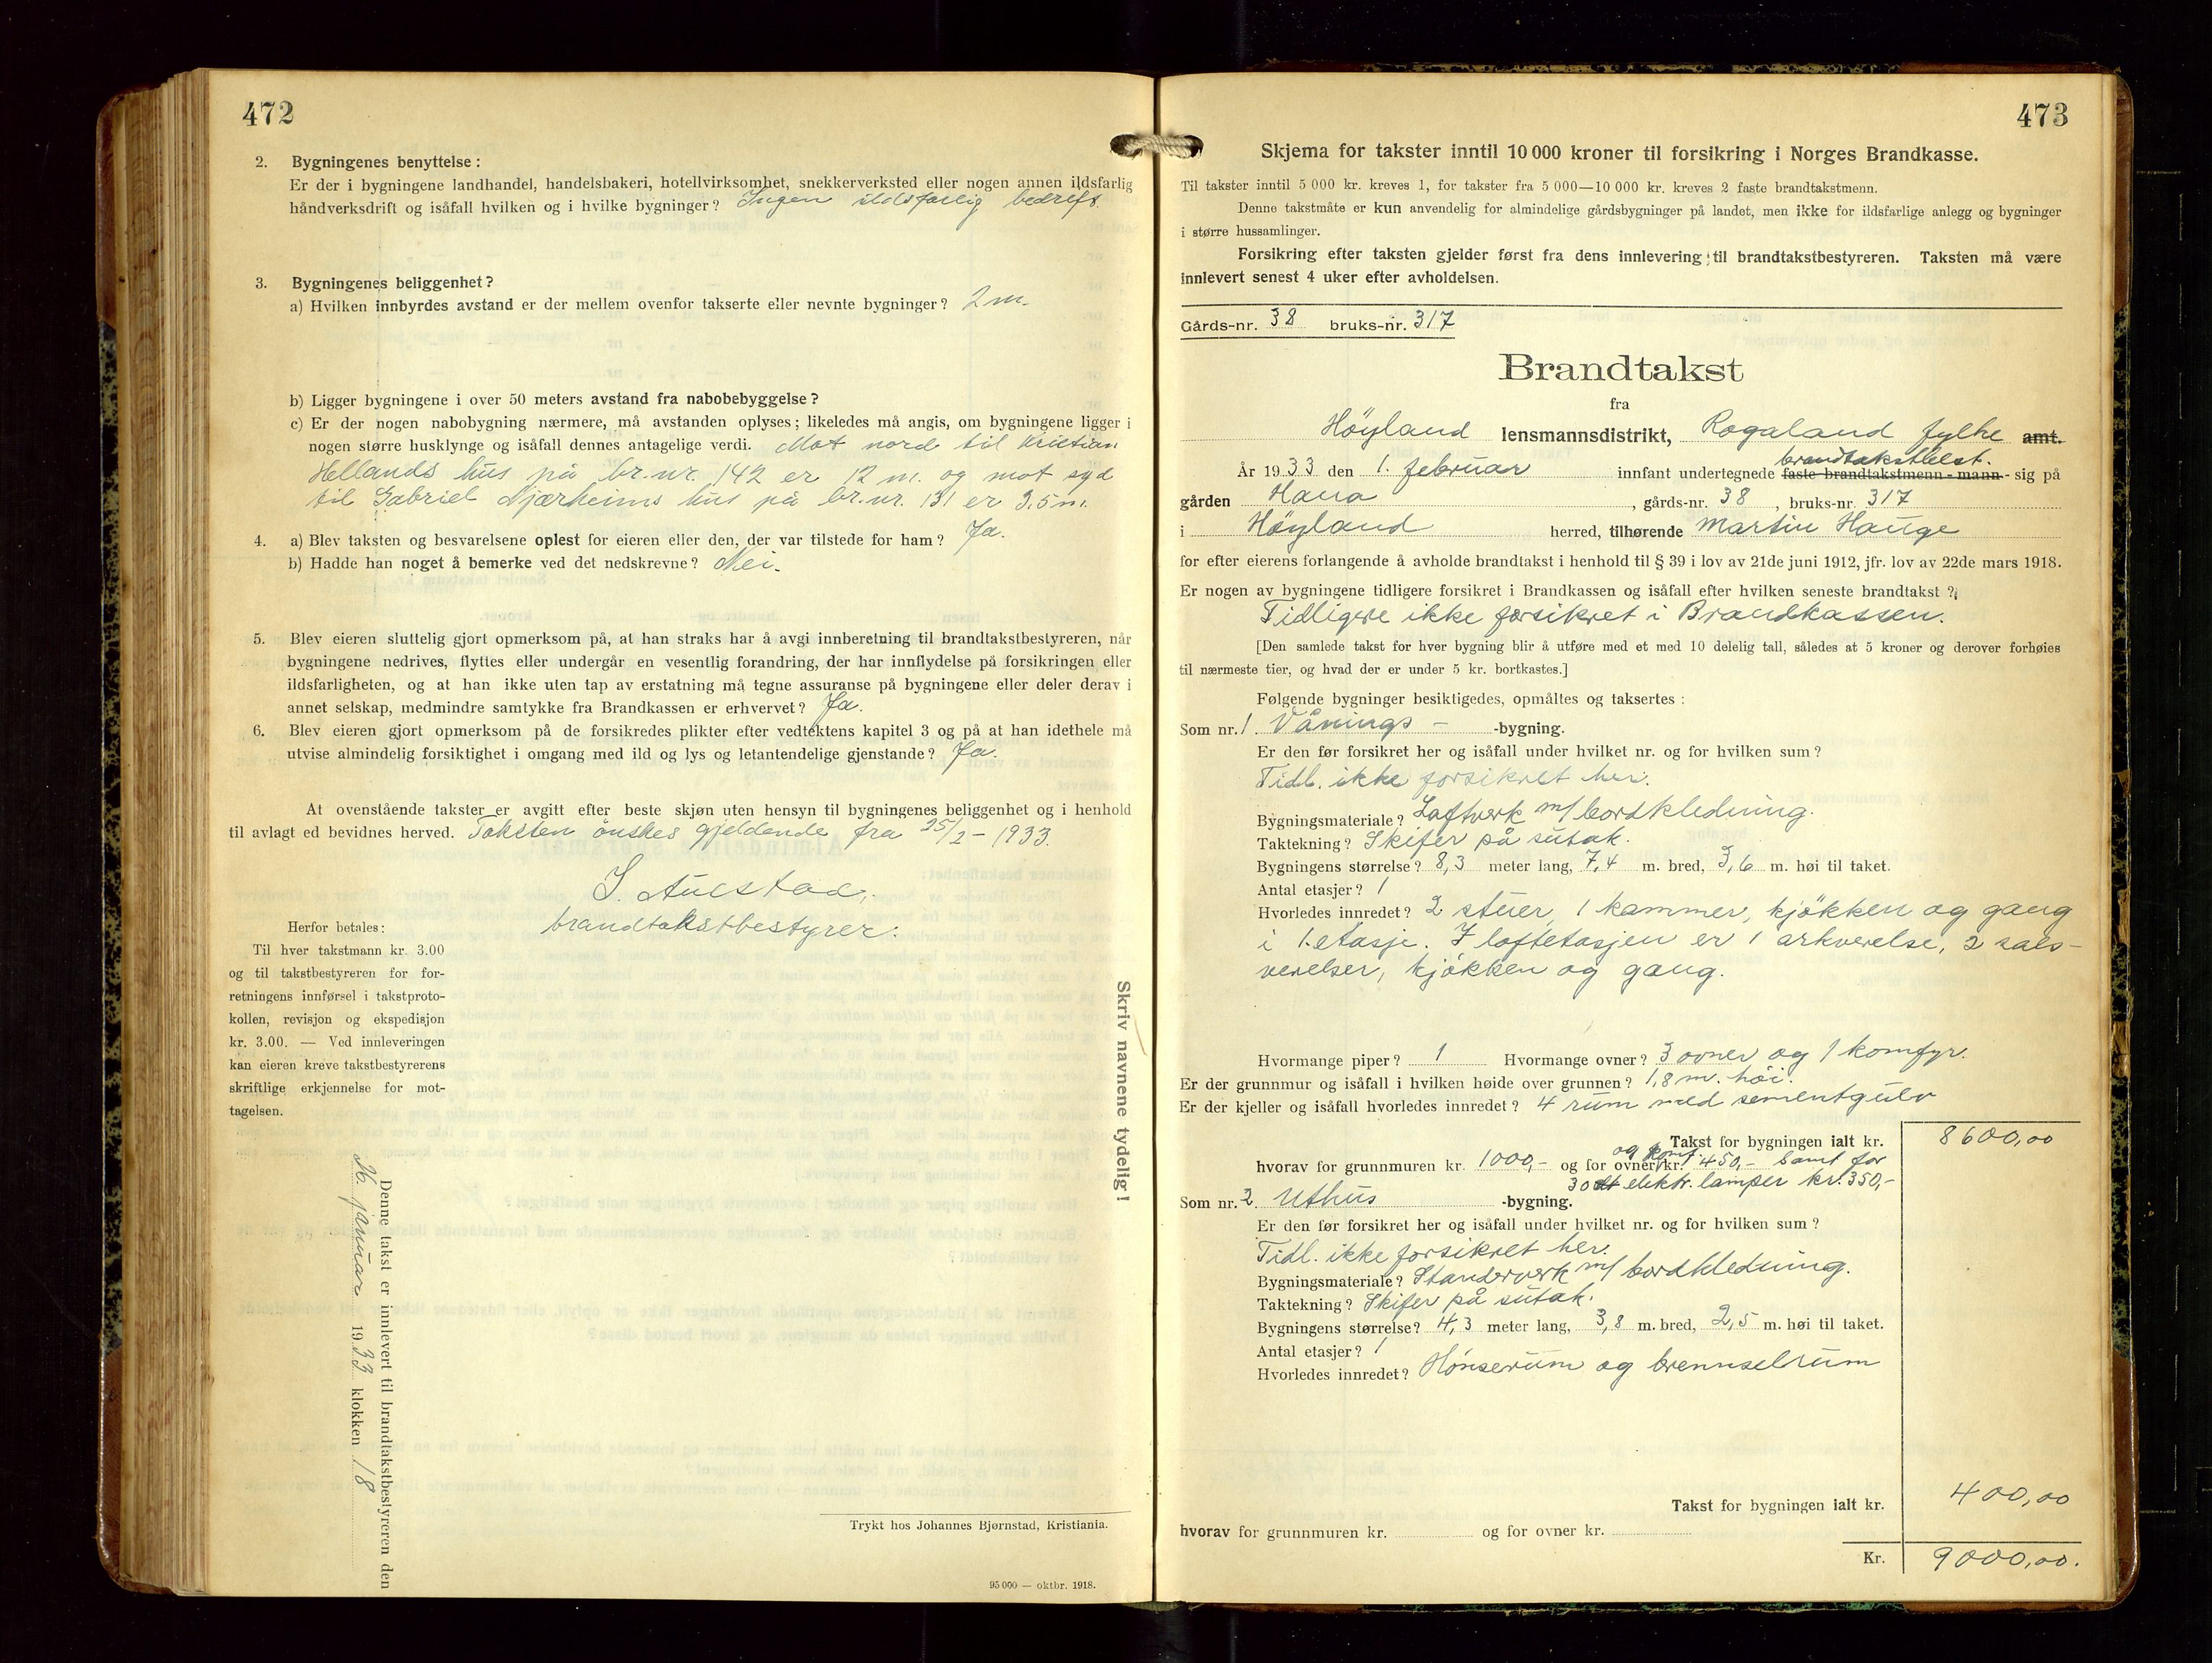 472
2. Bygningenes benyttelse :
Er der i bygningene landhandel, handelsbakeri, hotellvirksomhet, snekkerverksted eller nogen annen ildsfarlig
håndverksdrift og isåfall hvilken og i hvilke bygninger? Ingen ildsfarlig bedrift.
3. Bygningenes beliggenhet?
a) Hvilken innbyrdes avstand er der mellem ovenfor takserte eller nevnte bygninger? 2 m.
b) Ligger bygningene i over 50 meters avstand fra nabobebyggelse?
c) Er der nogen nabobygning nærmere, må avstanden oplyses; likeledes må angis, om bygningene ligger i
nogen større husklynge og isåfall dennes antagelige verdi. Mot nord til Kristian
Hellands hus på br.nr. 142 er 12 m. og mot syd
til Gabriel Njærheims hus på br.nr. 131 er 3,5 m.
4. a) Blev taksten og besvarelsene oplest for eieren eller den, der var tilstede for ham? Ja.
b) Hadde han noget å bemerke ved det nedskrevne? Nei.
5. Blev eieren sluttelig gjort opmerksom på, at han straks har å avgi innberetning til brandtakstbestyreren, når
bygningene nedrives, flyttes eller undergår en vesentlig forandring, der har innflydelse på forsikringen eller
ildsfarligheten, og at han ikke uten tap av erstatning må tegne assuranse på bygningene eller deler derav i
annet selskap, medmindre samtykke fra Brandkassen er erhvervet? Ja.
6. Blev eieren gjort opmerksom på de forsikredes plikter efter vedtektens kapitel 3 og på at han idethele må
utvise almindelig forsiktighet i omgang med ild og lys og letantendelige gjenstande? Ja.
At ovenstående takster er avgitt efter beste skjøn uten hensyn til bygningenes beliggenhet og i henhold
til avlagt ed bevidnes herved. Taksten ønskes gjeldende fra 25/2 - 1933.
S. Aulestad,
brandtakstbestyrer.
Herfor betales:
Til hver takstmann kr. 3.00
og til takstbestyreren for for-
retningens innførsel i takstproto-
kollen, revisjon og ekspedisjon
kr. 3.00. — Ved innleveringen
kan eieren kreve takstbestyrerens
skriftlige erkjennelse for mot-
tagelsen.
Skriv navnene tydelig!
Denne takst er innlevert til brandtakstbestyreren den
16. januar 1933 klokken 18
Trykt hos Johannes Bjørnstad, Kristiania.
95 000 — oktbr. 1918.
473
Skjema for takster inntil 10 000 kroner til forsikring i Norges Brandkasse.
Til takster inntil 5 000 kr. kreves 1, for takster fra 5 000—10 000 kr. kreves 2 faste brandtakstmenn.
Denne takstmåte er kun anvendelig for almindelige gårdsbygninger på landet, men ikke for ildsfarlige anlegg og bygninger
i større hussamlinger.
Forsikring efter taksten gjelder først fra dens innlevering til brandtakstbestyreren. Taksten må være
innlevert senest 4 uker efter avholdelsen.
Gårds-nr. 38 bruks-nr. 317
Brandtakst
fra
Høyland lensmannsdistrikt, Rogaland fylke amt.
brandtakstbest.
År 1933 den 1. februar innfant undertegnede faste brandtakstmenn - mann - sig på
gården Hana, gårds-nr. 38, bruks-nr. 317
i Høyland herred, tilhørende Martin Hauge
for efter eierens forlangende å avholde brandtakst i henhold til § 39 i lov av 21de juni 1912, jfr. lov av 22de mars 1918.
Er nogen av bygningene tidligere forsikret i Brandkassen og isåfall efter hvilken seneste brandtakst?
Tidligere ikke forsikret i Brandkassen.
[Den samlede takst for hver bygning blir å utføre med et med 10 delelig tall, således at 5 kroner og derover forhøies
til nærmeste tier, og hvad der er under 5 kr. bortkastes.]
Følgende bygninger besiktigedes, opmåltes og taksertes :
Som nr. 1 Vånings - -bygning.
Er den før forsikret her og isåfall under hvilket nr. og for hvilken sum?
Tidl. ikke forsikret her.
Bygningsmateriale? Laftverk m/ bordkledning.
Taktekning? Skifer på sutak.
Bygningens størrelse? 8,3 meter lang, 7,4 m. bred, 3,6 m. høi til taket.
Antal etasjer? 1
Hvorledes innredet? 2 stuer, 1 kammer, kjøkken og gang
i 1. etasje. I loftetasjen er 1 arkverelse, 2 sals-
verelser, kjøkken og gang.
Hvormange piper? 1 Hvormange ovner? 3 ovner og 1 komfyr.
Er der grunnmur og isåfall i hvilken høide over grunnen? 1,8 m. høi.
Er der kjeller og isåfall hvorledes innredet? 4 rum med sementgulv
Takst for bygningen ialt kr. 8600,00
og komf.
hvorav for grunnmuren kr. 1000,- og for ovner kr. 450,- samt for
30 elektr. lamper kr. 350,-
Som nr. 2. Uthus -bygning.
Er den før forsikret her og isåfall under hvilket nr. og for hvilken sum?
Tidl. ikke forsikret her.
Bygningsmateriale? Standerverk m/ bordkledning.
Taktekning? Skifer på sutak.
Bygningens størrelse? 4,3 meter lang, 3,8 m. bred, 2,5 m. høi til taket.
Antal etasjer? 1
Hvorledes innredet? Hönserum og brennselrum
Takst for bygningen ialt kr. 400,00
hvorav for grunnmuren kr. og for ovner kr.
Kr. 9000,00.